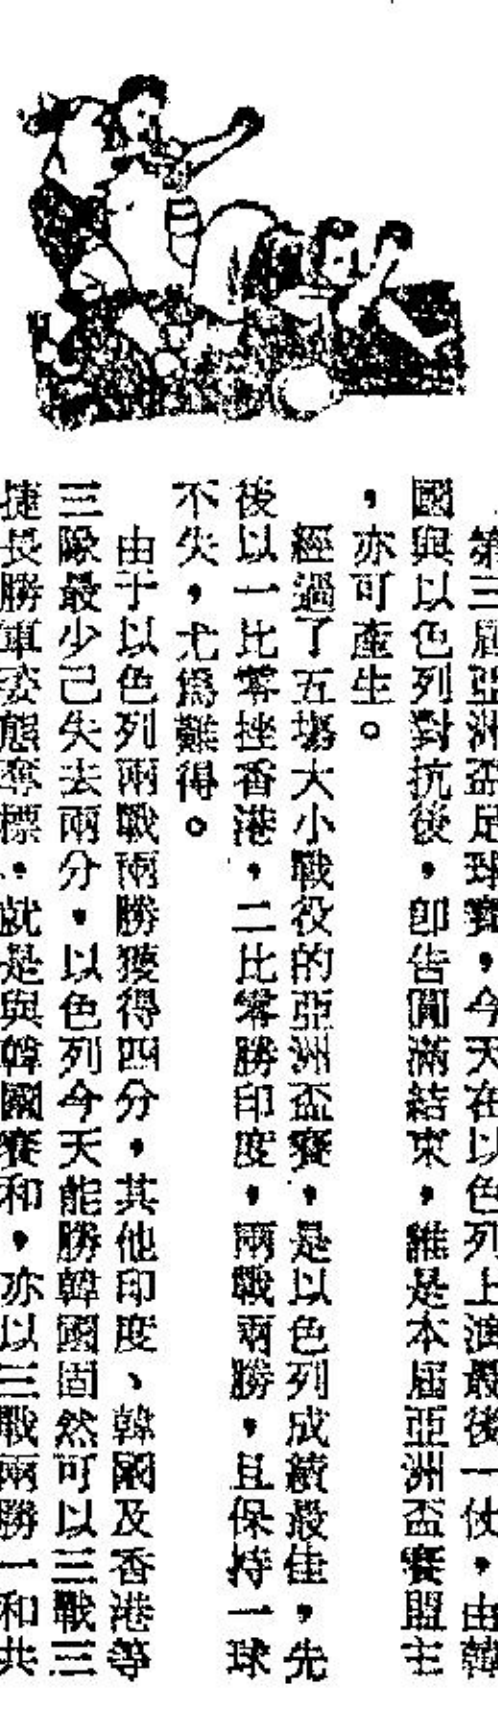 第三屆亞洲盃足球賽，今天在以色列上演最後一仗，由韓
國與以色列對抗後，卽告圓滿結束，誰是本屆亞洲盃賽盟主
，亦可產生。
經過了五場大小戰役的亞洲盃賽，是以色列成績最佳，先
後以一比零挫香港，二比零勝印度，兩戰兩勝，且保持一球
不失，尤爲難得。
由于以色列兩戰兩勝獲得四分，其他印度、韓國及香港等
三隊最少己失去兩分，以色列今天能勝韓國固然可以三戰三
捷長勝軍姿態奪標，就是與韓國賽和，亦以三戰兩勝一和共